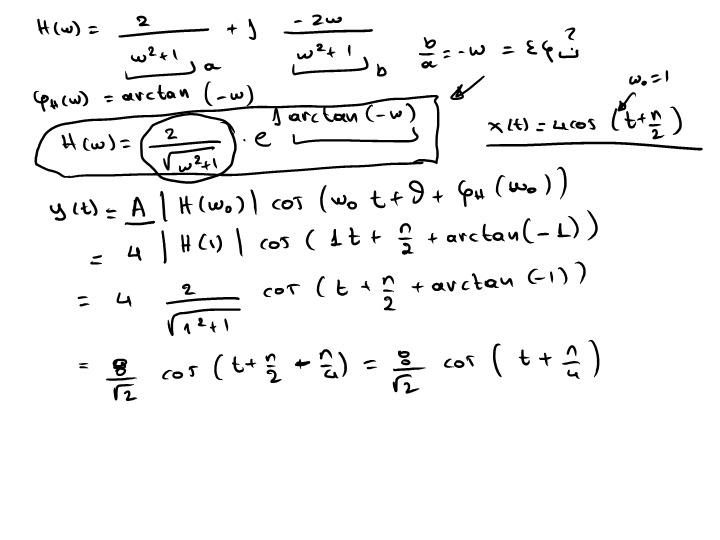 H(ω) = 2/(ω²+1) + j (-2ω)/(ω²+1)   b/a = -ω = εφ ?
a b
φ_H(ω) = arctan(-ω)
ω₀ = 1
H(ω) = 2/√(ω²+1) · e^(j arctan(-ω))   x(t) = 4cos(t+π/2)
y(t) = A |H(ω₀)| cos(ω₀ t + θ + φ_H(ω₀))
= 4 |H(1)| cos(1t + π/2 + arctan(-1))
= 4 2/√(1²+1) cos(t + π/2 + arctan(-1))
= 8/√2 cos(t+π/2 - π/4) = 8/√2 cos(t + π/4)